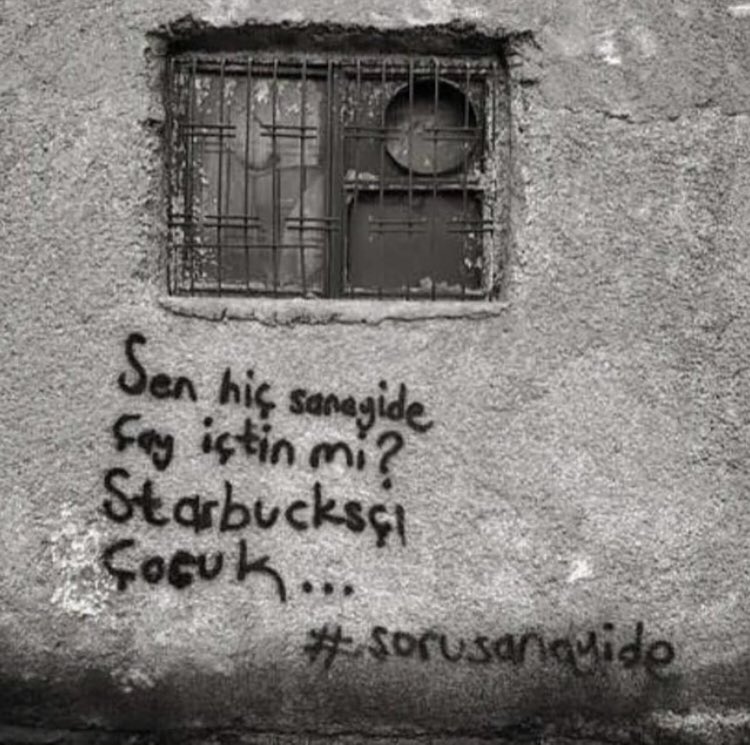 Sen hiç sanayide
Çay içtin mi?
Starbucksçı
Çocuk...
#sorusanayide